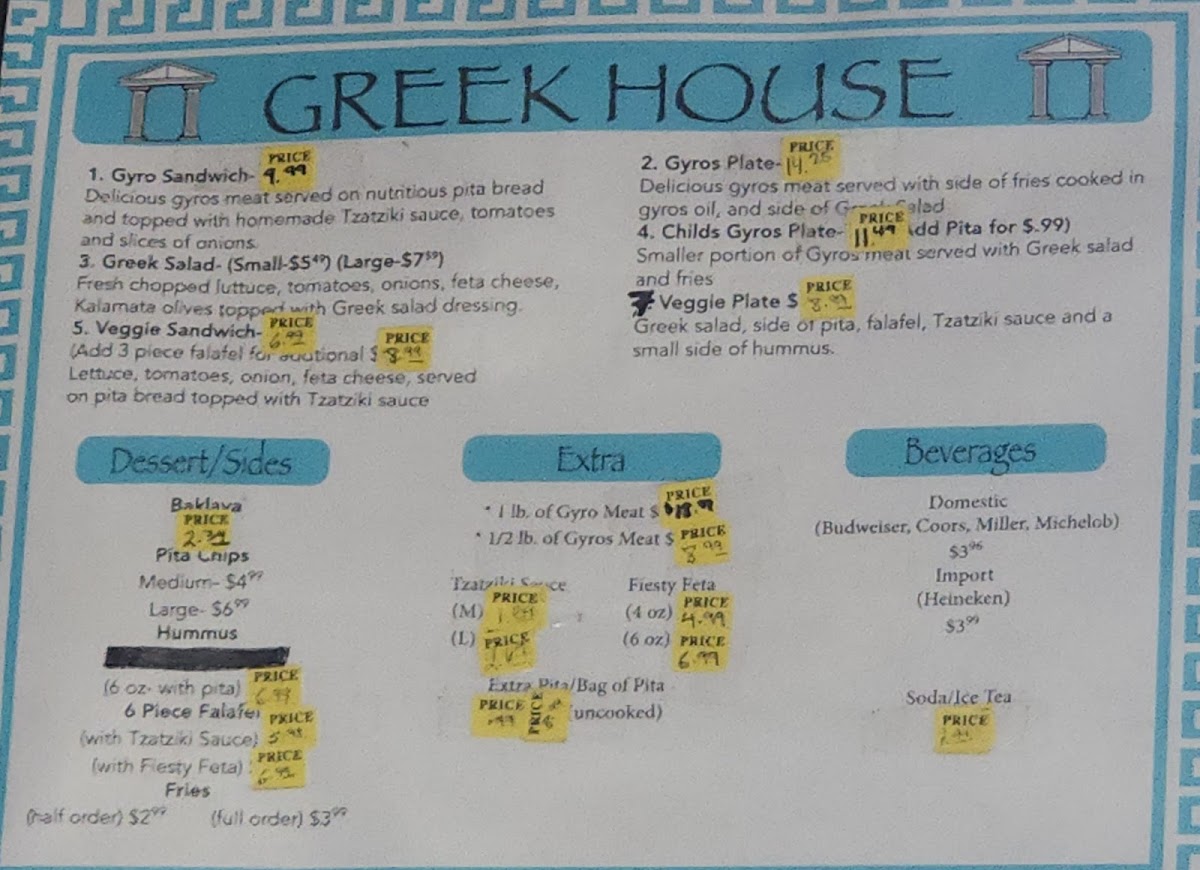 GREEK HOUSE
1. Gyro Sandwich- PRICE 9.99
Delicious gyros meat served on nutritious pita bread
and topped with homemade Tzatziki sauce, tomatoes
and slices of onions.
3. Greek Salad- (Small-$5⁴⁹) (Large-$7⁵⁹)
Fresh chopped luttuce, tomatoes, onions, feta cheese,
Kalamata olives topped with Greek salad dressing.
5. Veggie Sandwich- PRICE 6.99
(Add 3 piece falafel for additional $ PRICE 8.99
Lettuce, tomatoes, onion, feta cheese, served
on pita bread topped with Tzatziki sauce
2. Gyros Plate- PRICE 14.25
Delicious gyros meat served with side of fries cooked in
gyros oil, and side of Greek Salad
4. Childs Gyros Plate- PRICE 11.49 Add Pita for $.99)
Smaller portion of Gyros meat served with Greek salad
and fries
7. Veggie Plate $ PRICE 8.99
Greek salad, side of pita, falafel, Tzatziki sauce and a
small side of hummus.
Dessert/Sides
Baklava
PRICE
Pita Chips
Medium- $4⁹⁹
Large- $6⁹⁹
Hummus
(6 oz- with pita) PRICE 6.99
6 Piece Falafel
(with Tzatziki Sauce) PRICE
(with Fiesty Feta) PRICE
Fries
(half order) $2⁹⁹ (full order) $3⁹⁹
Extra
* 1 lb. of Gyro Meat $ PRICE
* 1/2 lb. of Gyros Meat $ PRICE 8.99
Tzatziki Sauce
(M) PRICE
(L) PRICE
Fiesty Feta
(4 oz) PRICE 4.99
(6 oz) PRICE 6.99
Extra Pita/Bag of Pita
PRICE .99 PRICE (uncooked)
Beverages
Domestic
(Budweiser, Coors, Miller, Michelob)
$3⁹⁶
Import
(Heineken)
$3⁹⁹
Soda/Ice Tea
PRICE